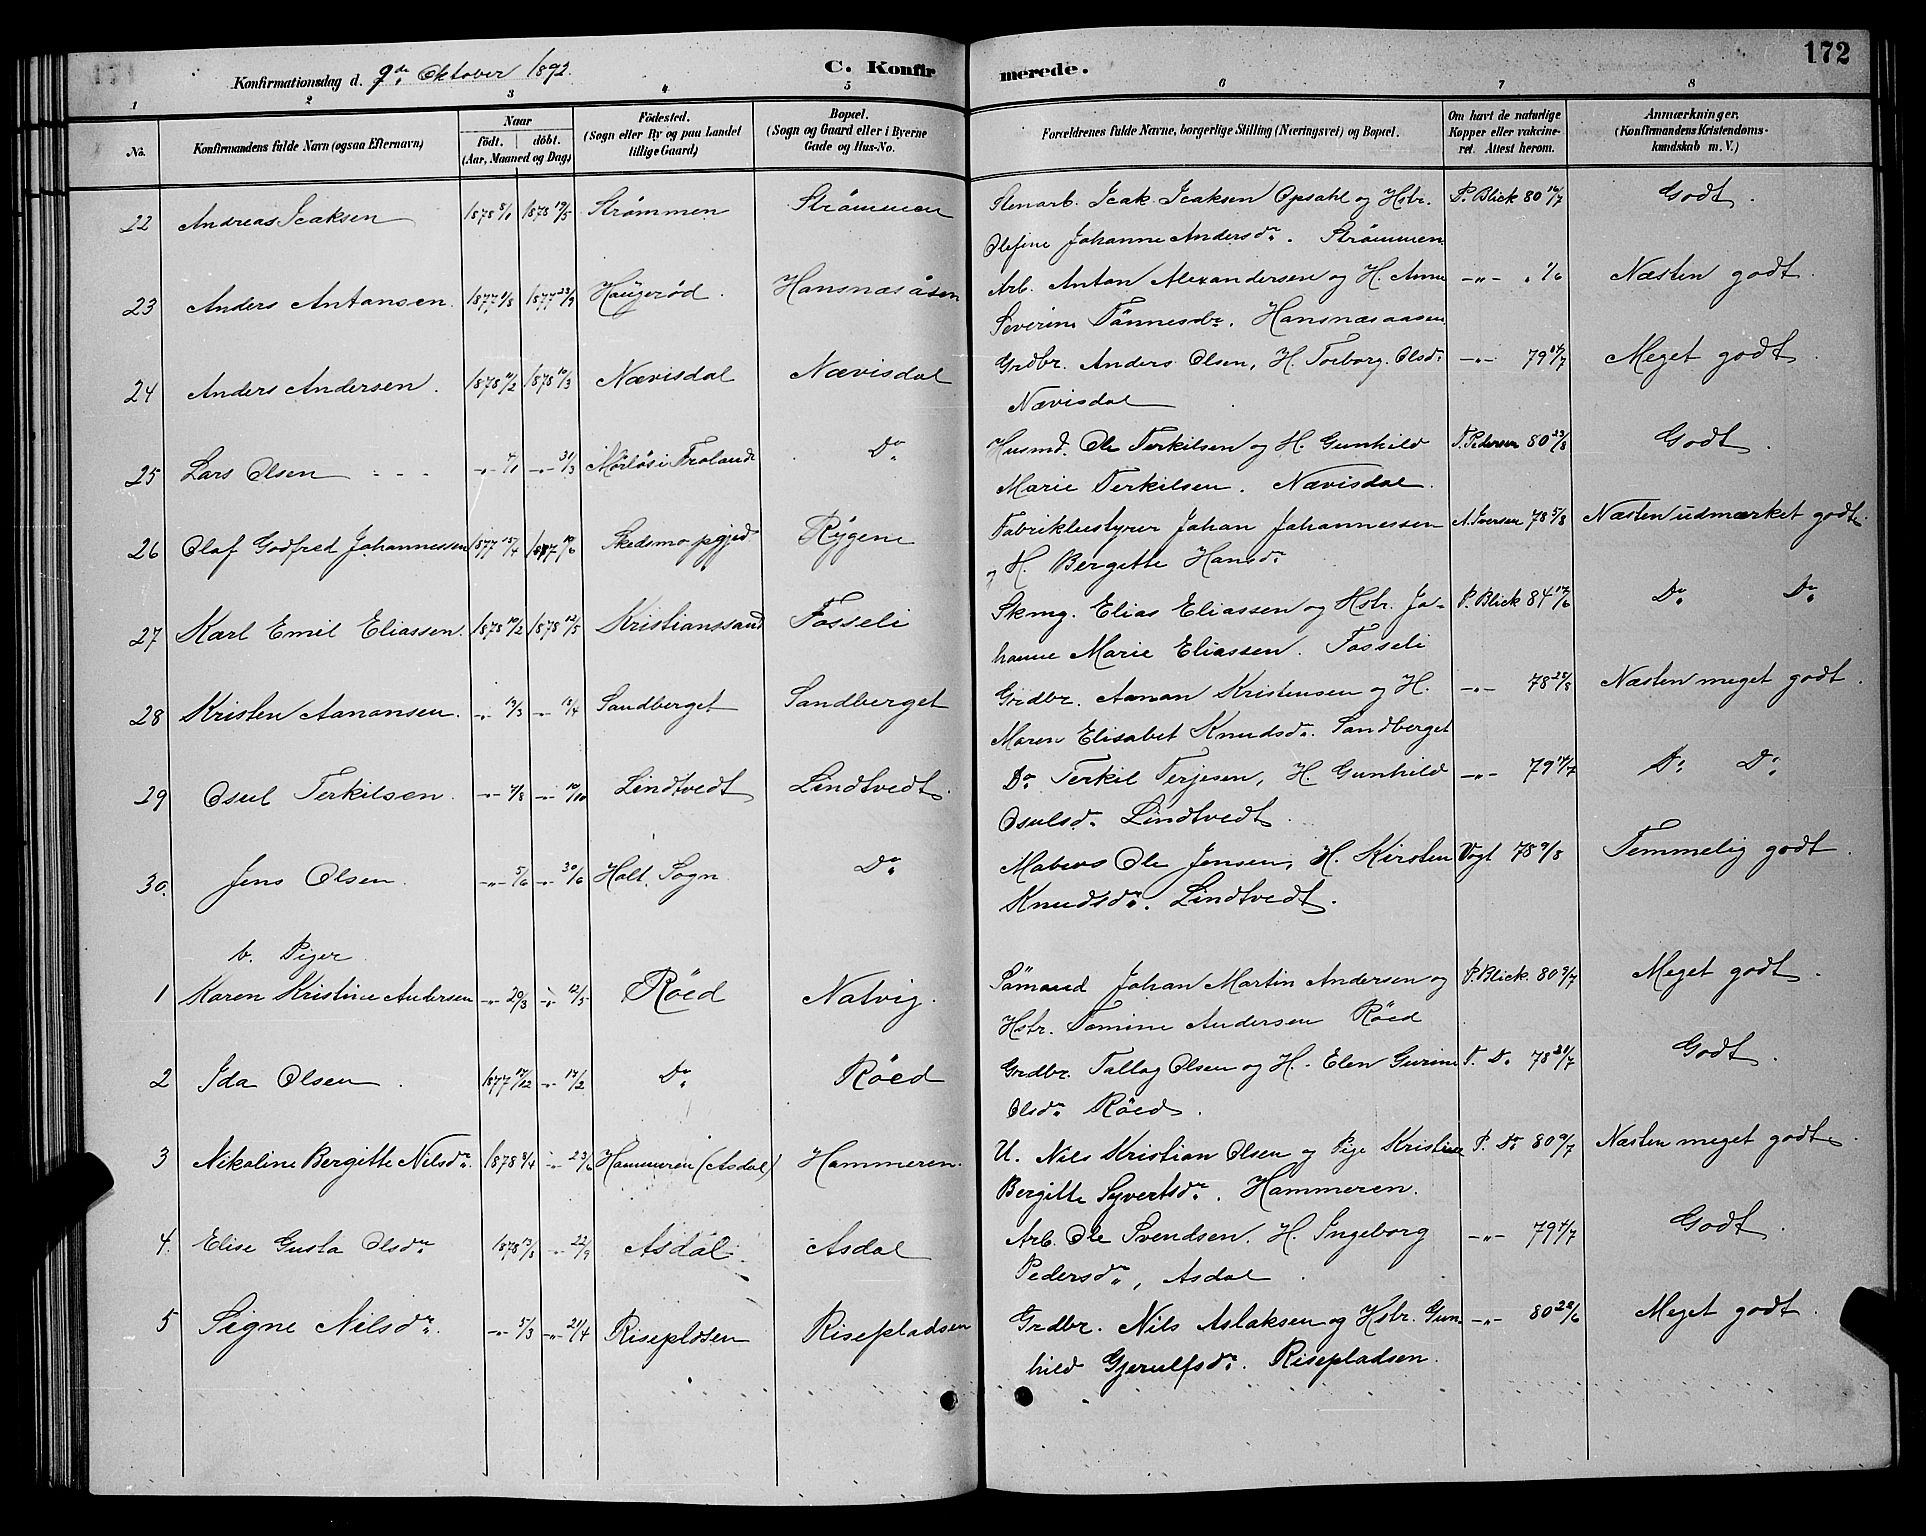 172
Konfirmationsdag d. 9de Oktober 1892.
C. Konfirmerede.
1 2 3 4 5 6 7 8
No. Konfirmandens fulde Navn (ogsaa Efternavn) Naar født. døbt. (Aar, Maaned og Dag) Fødested. (Sogn eller By og paa Landet tillige Gaard) Bopæl. (Sogn og Gaard eller i Byerne Gade og Hus-No. Forældrenes fulde Navne, borgerlige Stilling (Næringsvei) og Bopæl. Om havt de naturlige Kopper eller vakcineret. Attest herom. Anmærkninger. (Konfirmandens Kristendomskundskab m. V.)
22 Andreas Icaksen 1878 5/1 1878 19/5 Strømmen Strømmen Stenarb. Icak Icaksen Opsahl og Hstr. P. Blick 80 16/7 Godt.
Olefine Johanne Andersdr. Strømmen
23 Anders Antonsen. 1877 6/8 1877 23/9 Haugerød. Hansnæsåsen Arb. Anton Alexandersen og H. Anne -"- 1/6 Næsten godt.
Severine Tønnesdr. Hansnæsaasen
24 Anders Andersen. 1878 /2 1878 /3 Nævisdal Nævisdal Grdbr. Anders Olsen, H. Torborg Olsdr. -"- 79 17/7 Meget godt.
Nævisdal
25 Lars Olsen -"- 4/1 -"- 31/3 Mørløs i Froland Do. Husmd. Ole Terkilsen og H. Gunhild T. Pedersen 80 23/8 Godt.
Marie Terkilsen. Nævisdal.
26 Olaf Godfred Johannessen 1877 15/4 1877 10/6 Skedsmo pgjd Rygene Fabrikbestyrer Johan Johannessen A. Iversen 78 5/8 Næsten udmærket godt.
og H. Bergitte Hansdr.
27 Karl Emil Eliassen. 1878 10/2 1878 12/5 Kristianssand Fosseli Skmg. Elias Eliassen og Hstr. Jo- P. Blick 84 17/6 Do. Do.
hanne Marie Eliassen. Fosseli
28 Kristen Aanonsen. -"- 13/3 -"- /4 Sandberget Sandberget Grdbr. Aanon Kristensen og H. -"- 78 25/8 Næsten meget godt.
Maren Elisabet Knudsdr. Sandberget
29 Osul Terkilsen. -"- 7/8 -"- /10 Lindtvedt Lindtvedt. Do. Terkil Terjesen, H. Gunhild -"- 79 17/7 Do. Do.
Osulsdr. Lindtvedt.
30. Jens Olsen. -"- 5/6 -"- 30/6 Holt Sogn Do. Ole Jensen, H. Kirsten Vogt 78 9/8 Temmelig godt.
Knudsdr. Lindtvedt.
b. Piger
1 Karen Kristine Andersen -"- 20/3 -"- 12/5 Røed Natvig. Sømand Johan Martin Andersen og P. Blick. 80 9/7 Meget godt.
Hstr. Tomine Andersen Røed
2 Ida Olsen. 1877 17/12 -"- 17/2 Do. Røed Grdbr. Tallag Olsen og H. Elen Gurine T. Do. 78 31/7 Godt.
Olsdr. Røed.
3 Nikoline Bergitte Nilsdr. 1878 8/4 -"- 23/6 Hammeren (Asdal) Hammeren. U. Nils Kristian Olsen og Pige Kristine P. Do. 80 9/7 Næsten meget godt.
Bergitte Syvertsdr. Hammeren.
4. Elise Gusta Olsdr. 1878 13/8 -"- 22/9 Asdal. Asdal Arb. Ole Svendsen. H. Ingeborg -"- 79 /7 Godt.
Pedersdr., Asdal.
5 Signe Nilsdr. -"- 5/3 -"- 21/4 Riseplosen Risepladsen Grdbr. Nils Aslaksen og Hstr. Gun- -"- 80 28/6 Meget godt.
hild Gjerulfsdr. Risepladsen.